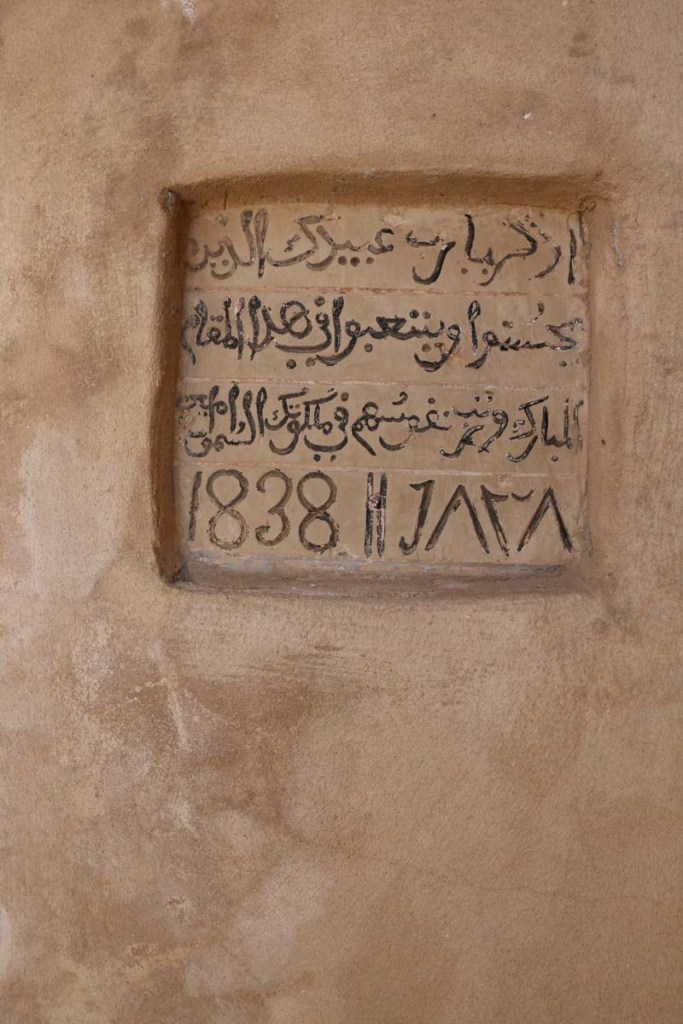 اذكر يا رب عبيدك الذين
يحسنوا ويتعبوا في هدا المقام
المبارك نفوسهم في ملكوتك امين
1838 ١٨٣٨